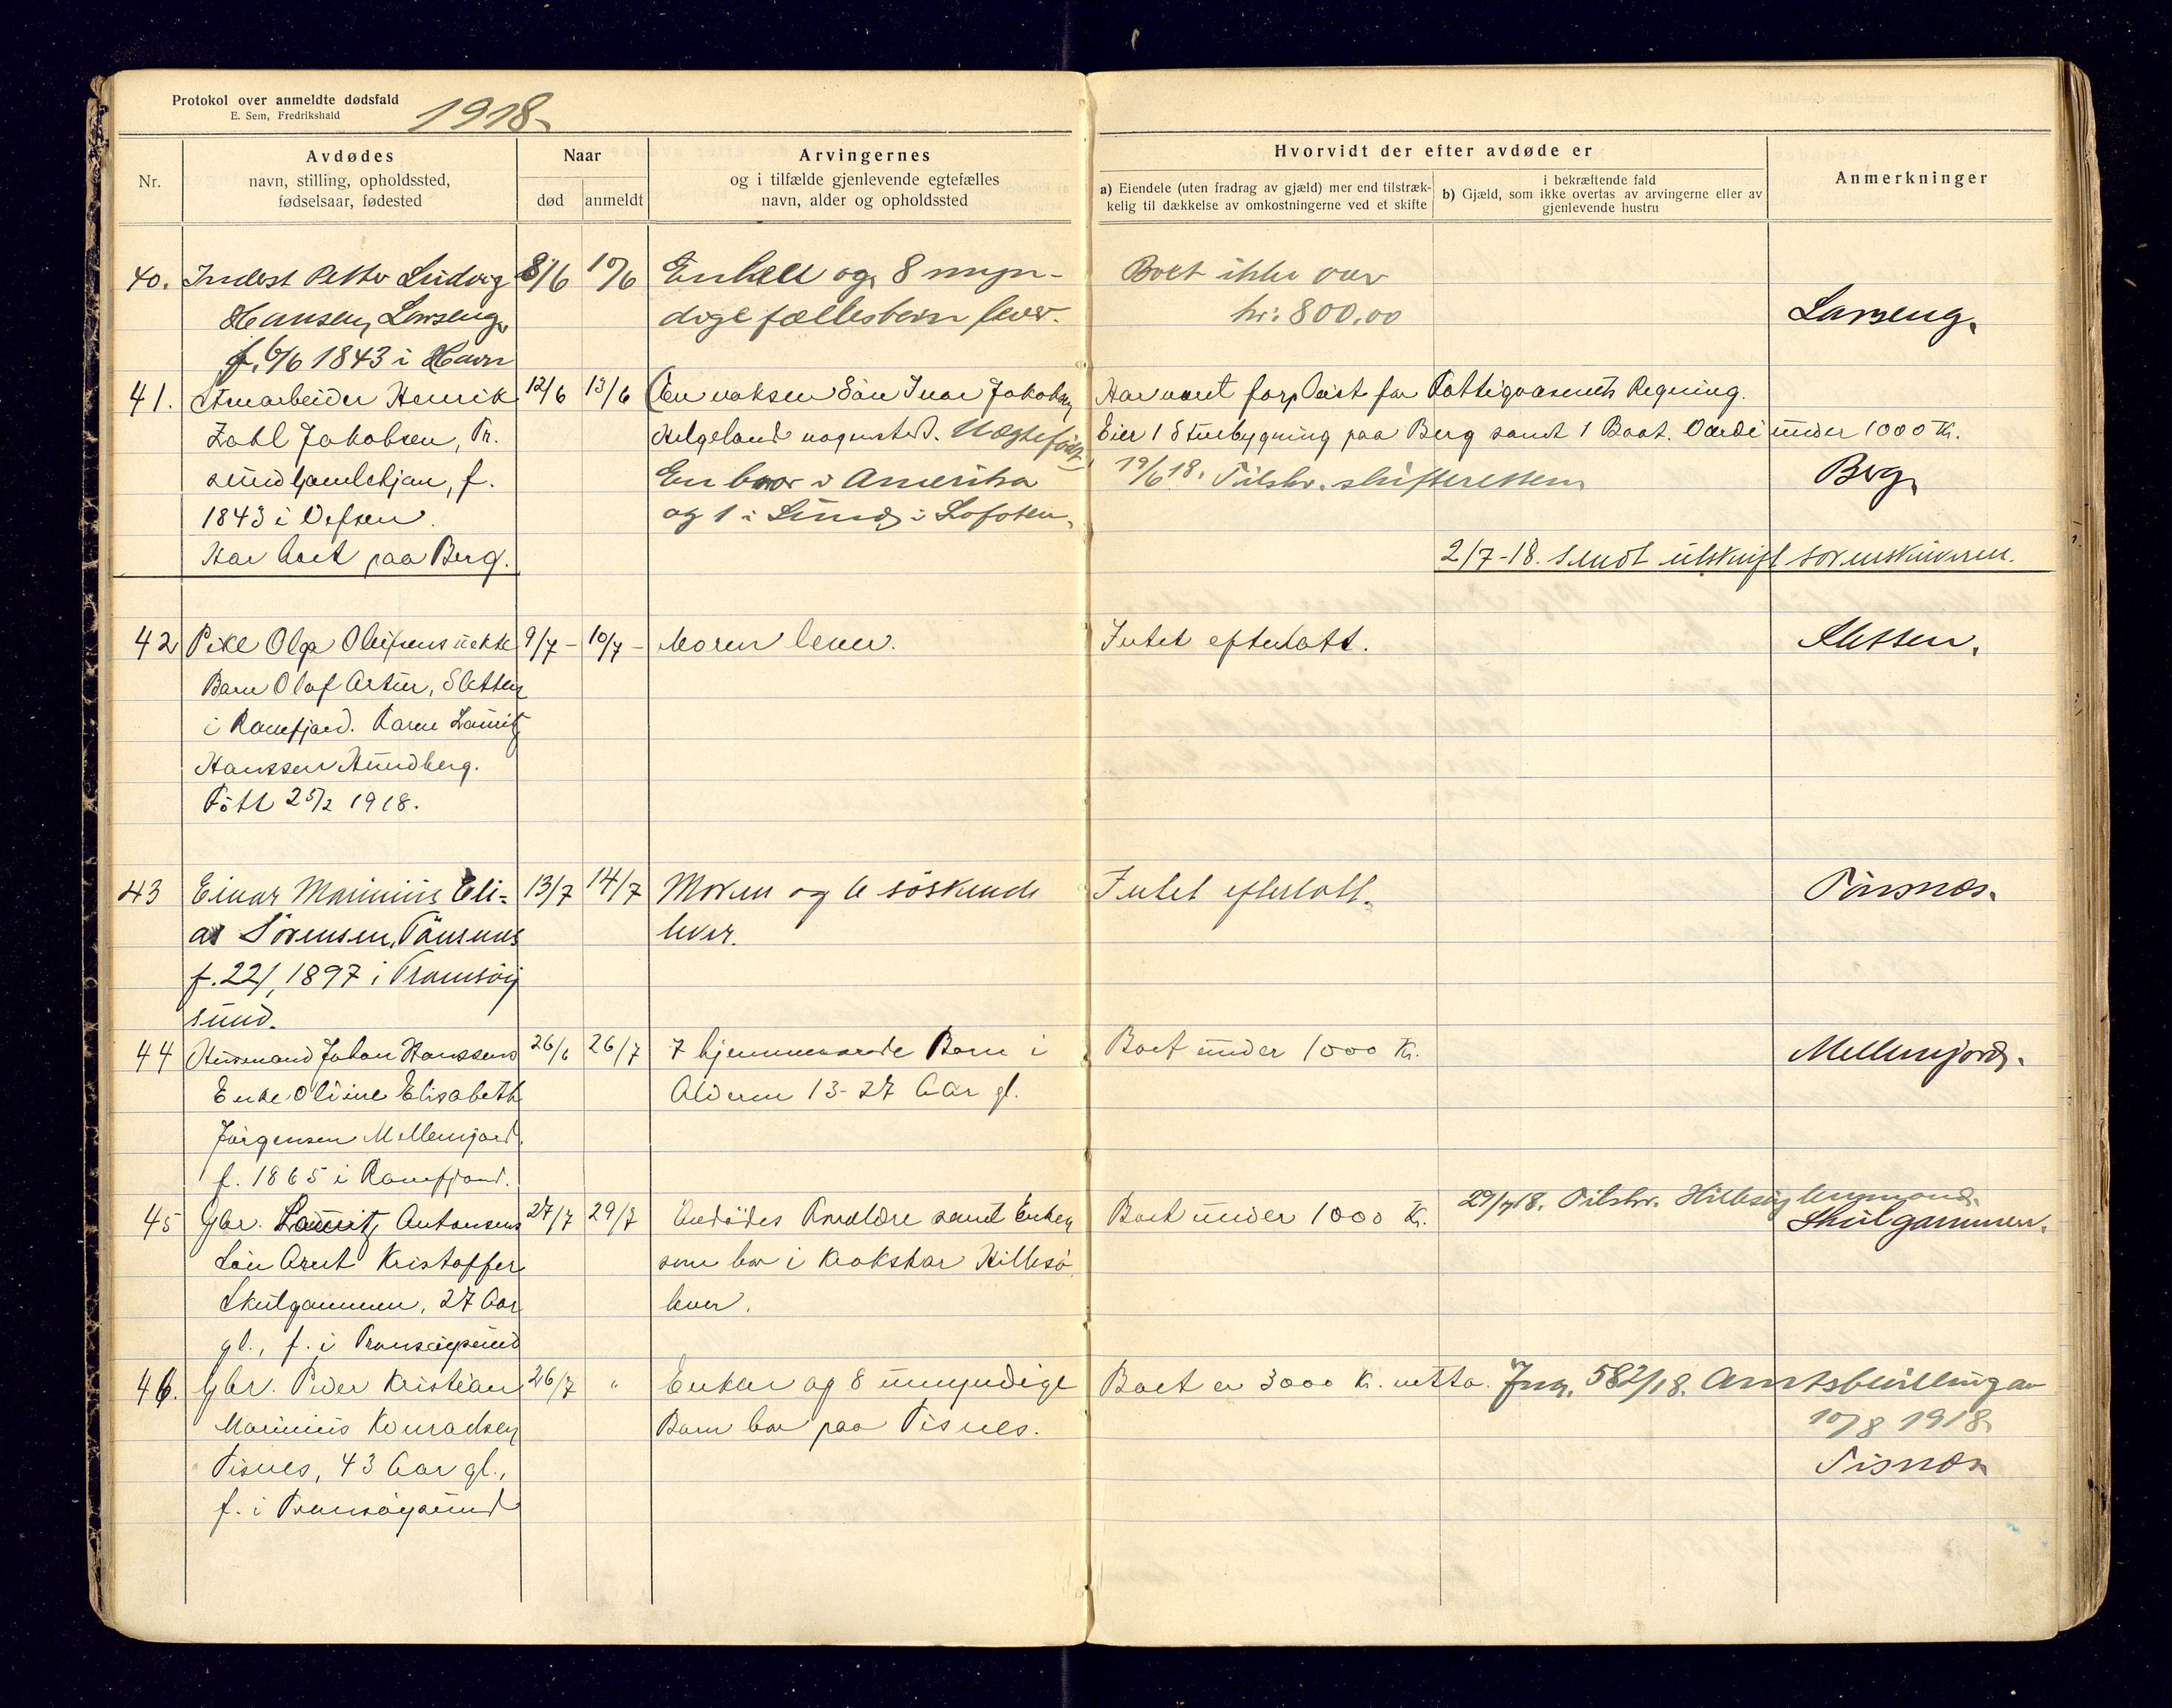 Protokol over anmeldte dødsfald
E. Sem, Fredrikshald
1918.
Nr.
Avdødes
navn, stilling, opholdssted,
fødselsaar, fødested
Naar
død
anmeldt
Arvingernes
og i tilfælde gjenlevende egtefælles
navn, alder og opholdssted
Hvorvidt der efter avdøde er
a) Eiendele (uten fradrag av gjæld) mer end tilstræk-
kelig til dækkelse av omkostningerne ved et skifte
i bekræftende fald
b) Gjæld, som ikke overtas av arvingerne eller av
gjenlevende hustru
Anmerkninger
40. Inderst Petter Ludvig 8/6 10/6 Enken og 8 myn- Boet ikke over
Hansen, Larseng, dige fællesbarn lever. kr: 800,00 Larseng.
f. 6/6 1843 i Havn
41. Henrik 12/6 13/6 En voksen Sön Ivar Jakobsen Har været forpleiet for Fattigvæsenets Regning.
Zahl Jakobsen, Tr. Helgeland Eier 1 Stuebygning paa Berg samt 1 Baat. Værdi under 1000 Kr.
sund Gamlehjem, f. En bror i Amerika 19/6 18. Tilskr. skifteretten Berg
1843 i Vefsen. og 1 i Sund i Lofoten.
Har boet paa Berg. 2/7-18. sendt utskrift sorenskriveren.
42 Pike Olga Olufsens uekte 9/7 - 10/7 - Moren lever. Intet efterlatt. Sletten.
Barn Olaf Artur, Sletten
i Ramfjord. Faren Lauritz
Hanssen Sundberg.
Född 25/2 1918.
43 Einar Marinius Eli- 13/7 14/7 Moren og 6 söskende Intet efterlatt. Tönsnes.
as Sörensen, Tönsnes lever.
f. 22/1 1897 i Tromsöy
sund.
44 Husmand Johan Hanssens 26/6 26/7 7 hjemmeværende Barn i Boet under 1000 Kr. Mellemjord.
Enke Oline Elisabeth Alderen 13-27 Aar gl.
Jörgensen Mellemjord,
f. 1865 i Ramfjord.
45 Gbr. Lauritz Antonsens 27/7 29/7 Avdödes Forældre samt Enken Boet under 1000 Kr. 29/7 18. Tilskr. Hillesöy lensmand.
Sön Arnt Kristoffer som bor i Kvokskar Hillesö Skulgammen.
Skulgammen, 27 Aar lever.
gl., f. i Tromsöysund
46. Gbr. Peder Kristian 26/7 " Enken og 8 umyndige Boet er 3000 Kr. netto. Jnr. 582/18. Amtsbevilling av
Marinius Konradsen Barn bor paa Tisnes. 10/8 1918
Tisnes, 43 Aar gl., Tisnes
f. i Tromsöysund